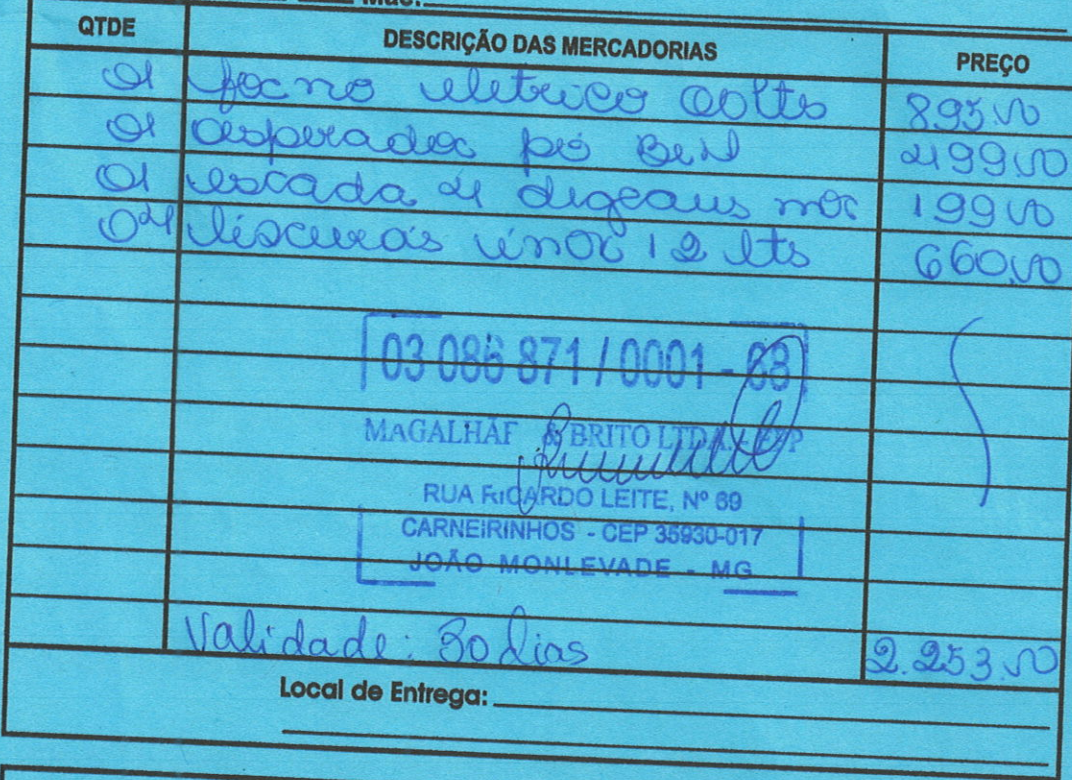 Mãe:
QTDE DESCRIÇÃO DAS MERCADORIAS PREÇO
01 forno eletrico 895,00
01 aspirador pó 499,00
01 escada 4 degraus mor 199,00
04 lixeiras inox 12 lts 660,00
03 086 871 / 0001 - 68
MAGALHÃE & BRITO LTDA. - EPP
RUA RICARDO LEITE, Nº 69
CARNEIRINHOS - CEP 35930-017
JOÃO MONLEVADE - MG
Validade: 30 dias 2.253,00
Local de Entrega: